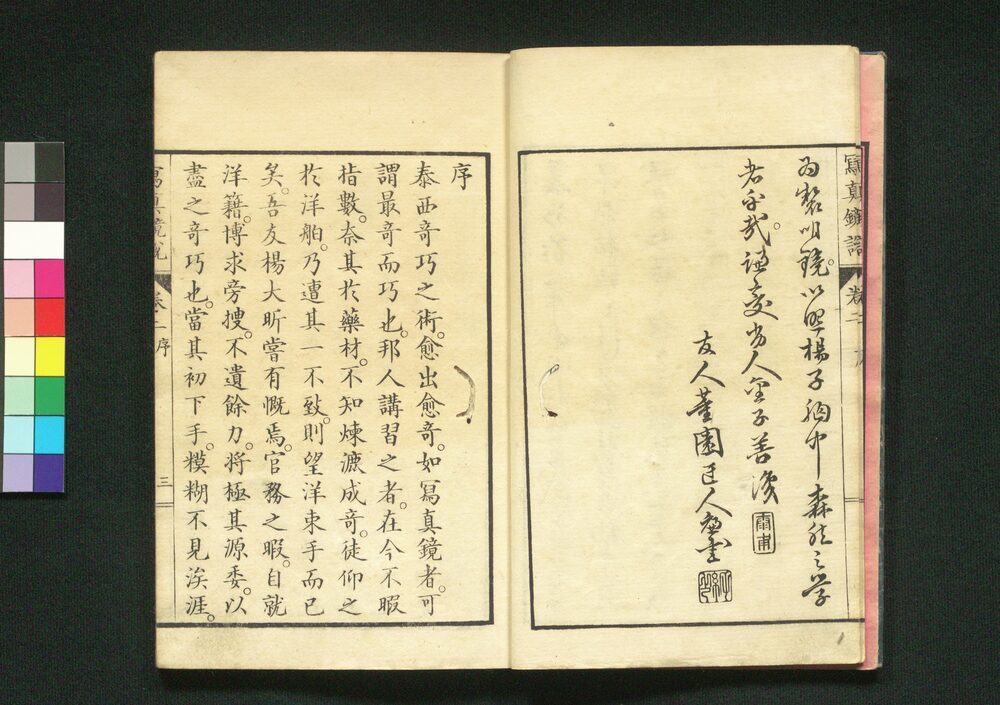 寫真鏡説
卷二
為製明鏡。以照楊子胸中森然之学
者
哉。謙
金子善濬
友人
董園
序
泰西奇巧之術。愈出愈奇。如冩真鏡者。可
謂最奇而巧也。邦人講習之者。在今不暇
指數。奈其於藥材。不知煉漉成奇。徒仰之
於洋舶。乃遭其一不致。則望洋束手而已
矣。吾友楊大昕嘗有慨焉。官務之暇。自就
洋籍。博求旁捜。不遺餘力。将極其源委。以
盡之奇巧也。當其初下手。糢糊不見涘涯。
寫真鏡説
卷二序
三